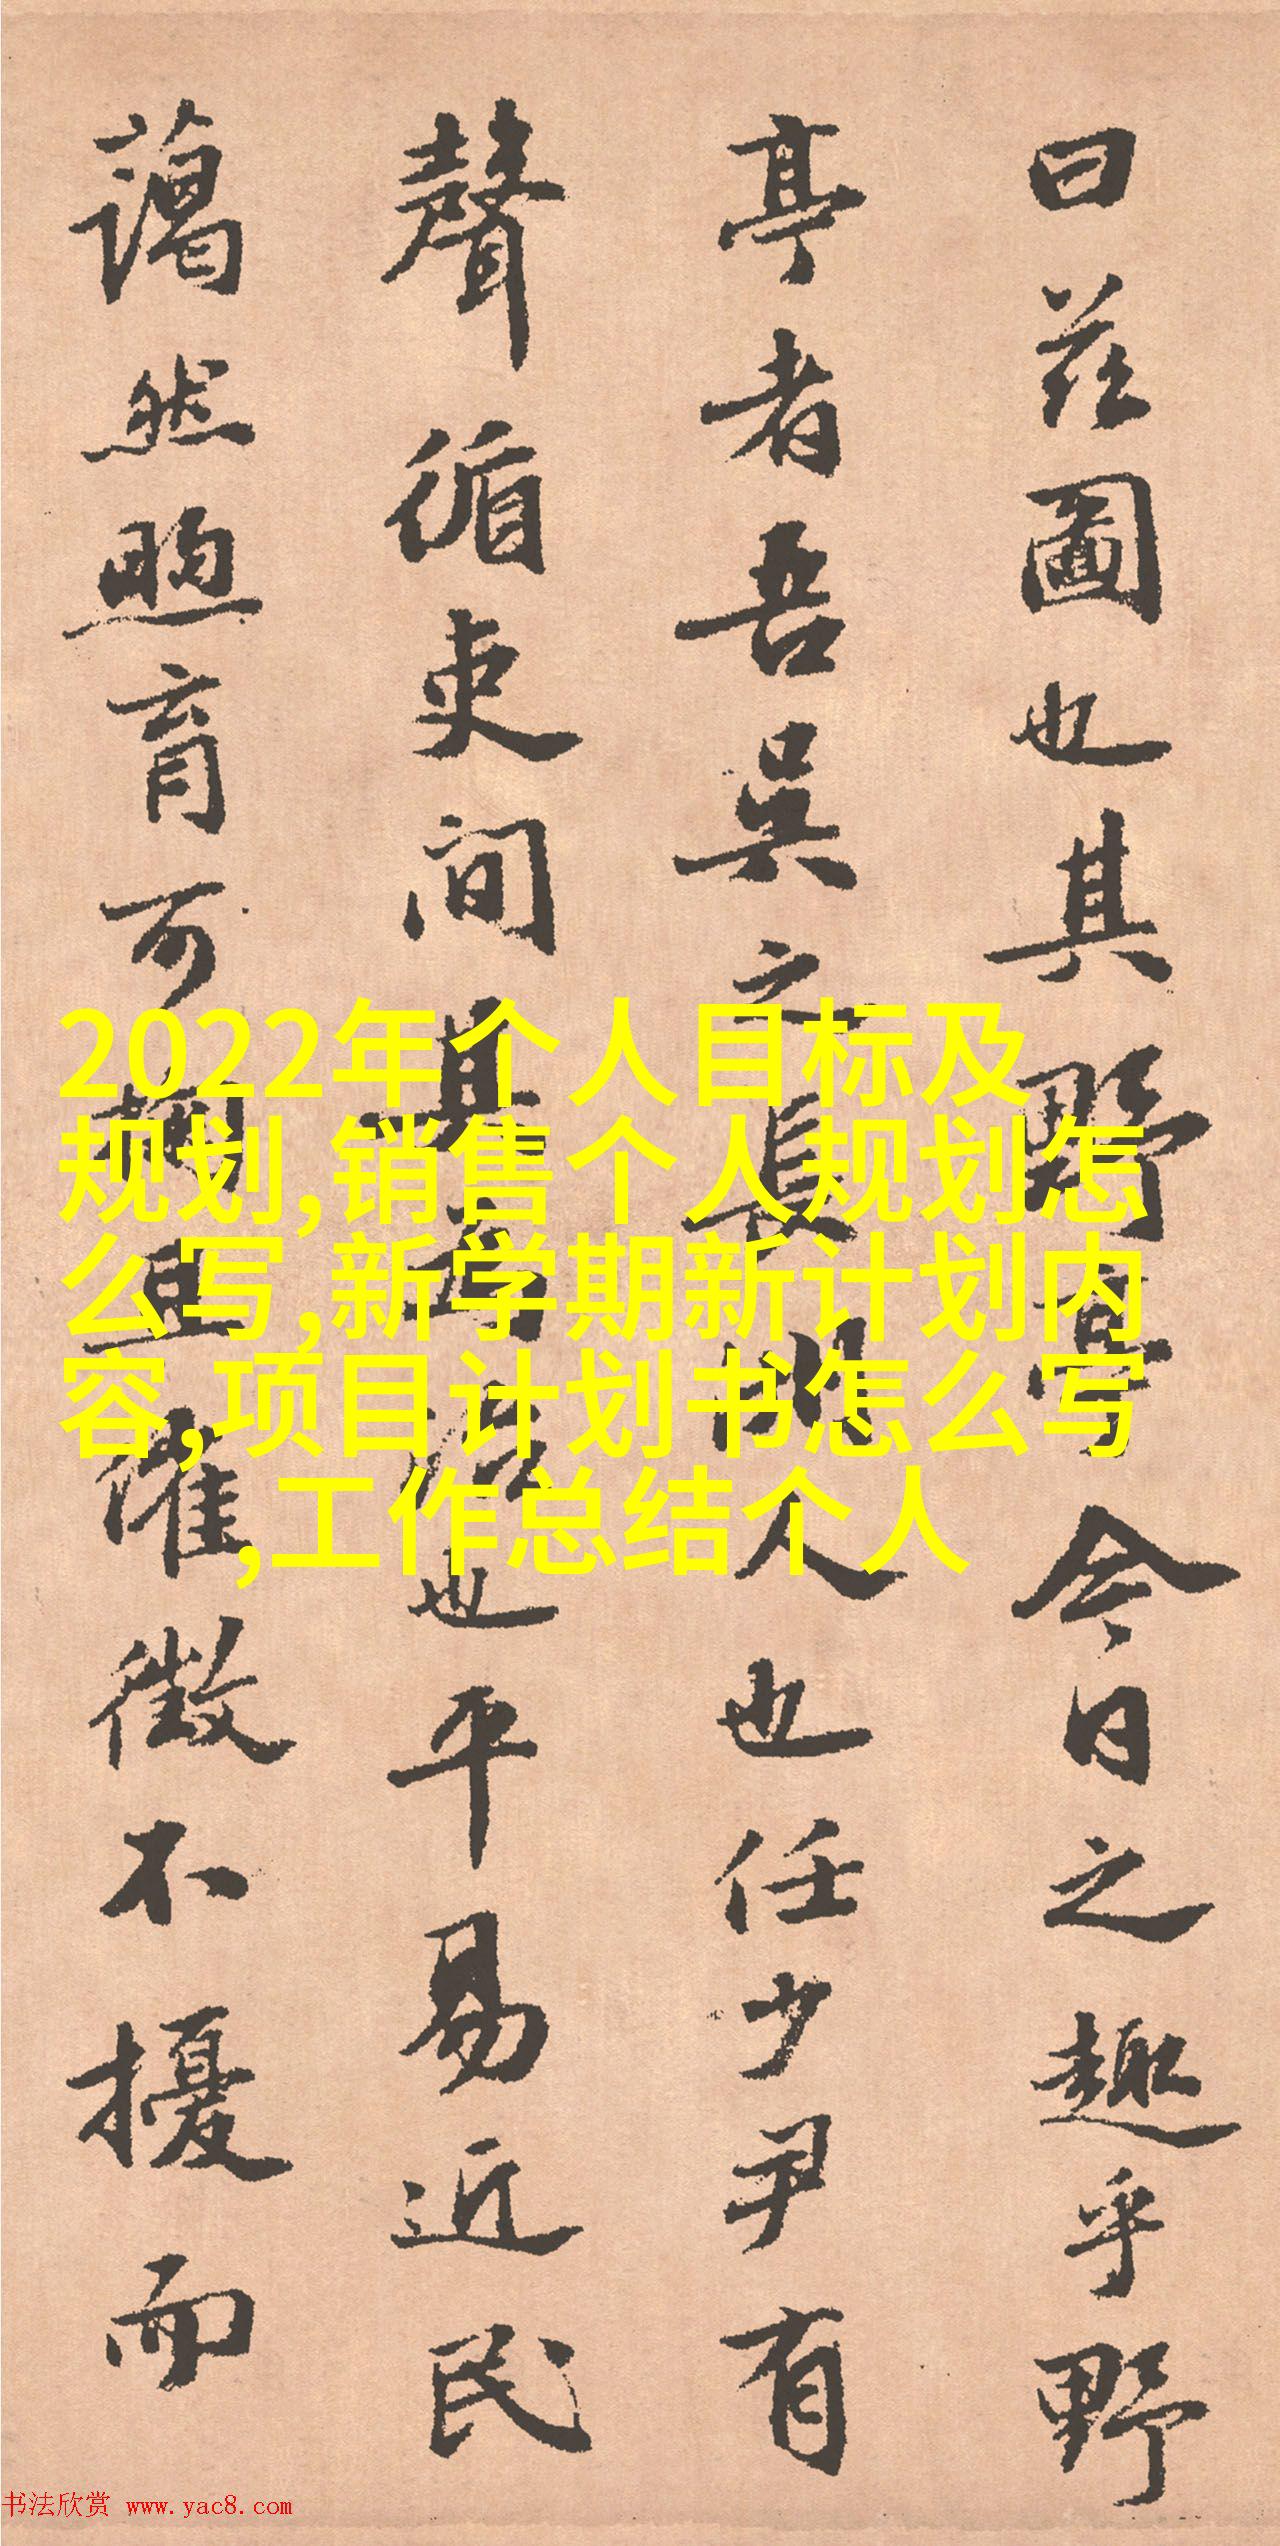 曰茲圖也其野亭今日之趣乎野
亭者吾吳之長人也任少尹有
聲循吏间其為治也平易近民
藹然煦育可掬且催徵不擾而
2022年个人目标及
规划,销售个人规划怎
么写,新学期新计划内
容,项目计划书怎么写
,工作总结个人
书法欣赏 www.yac8.com